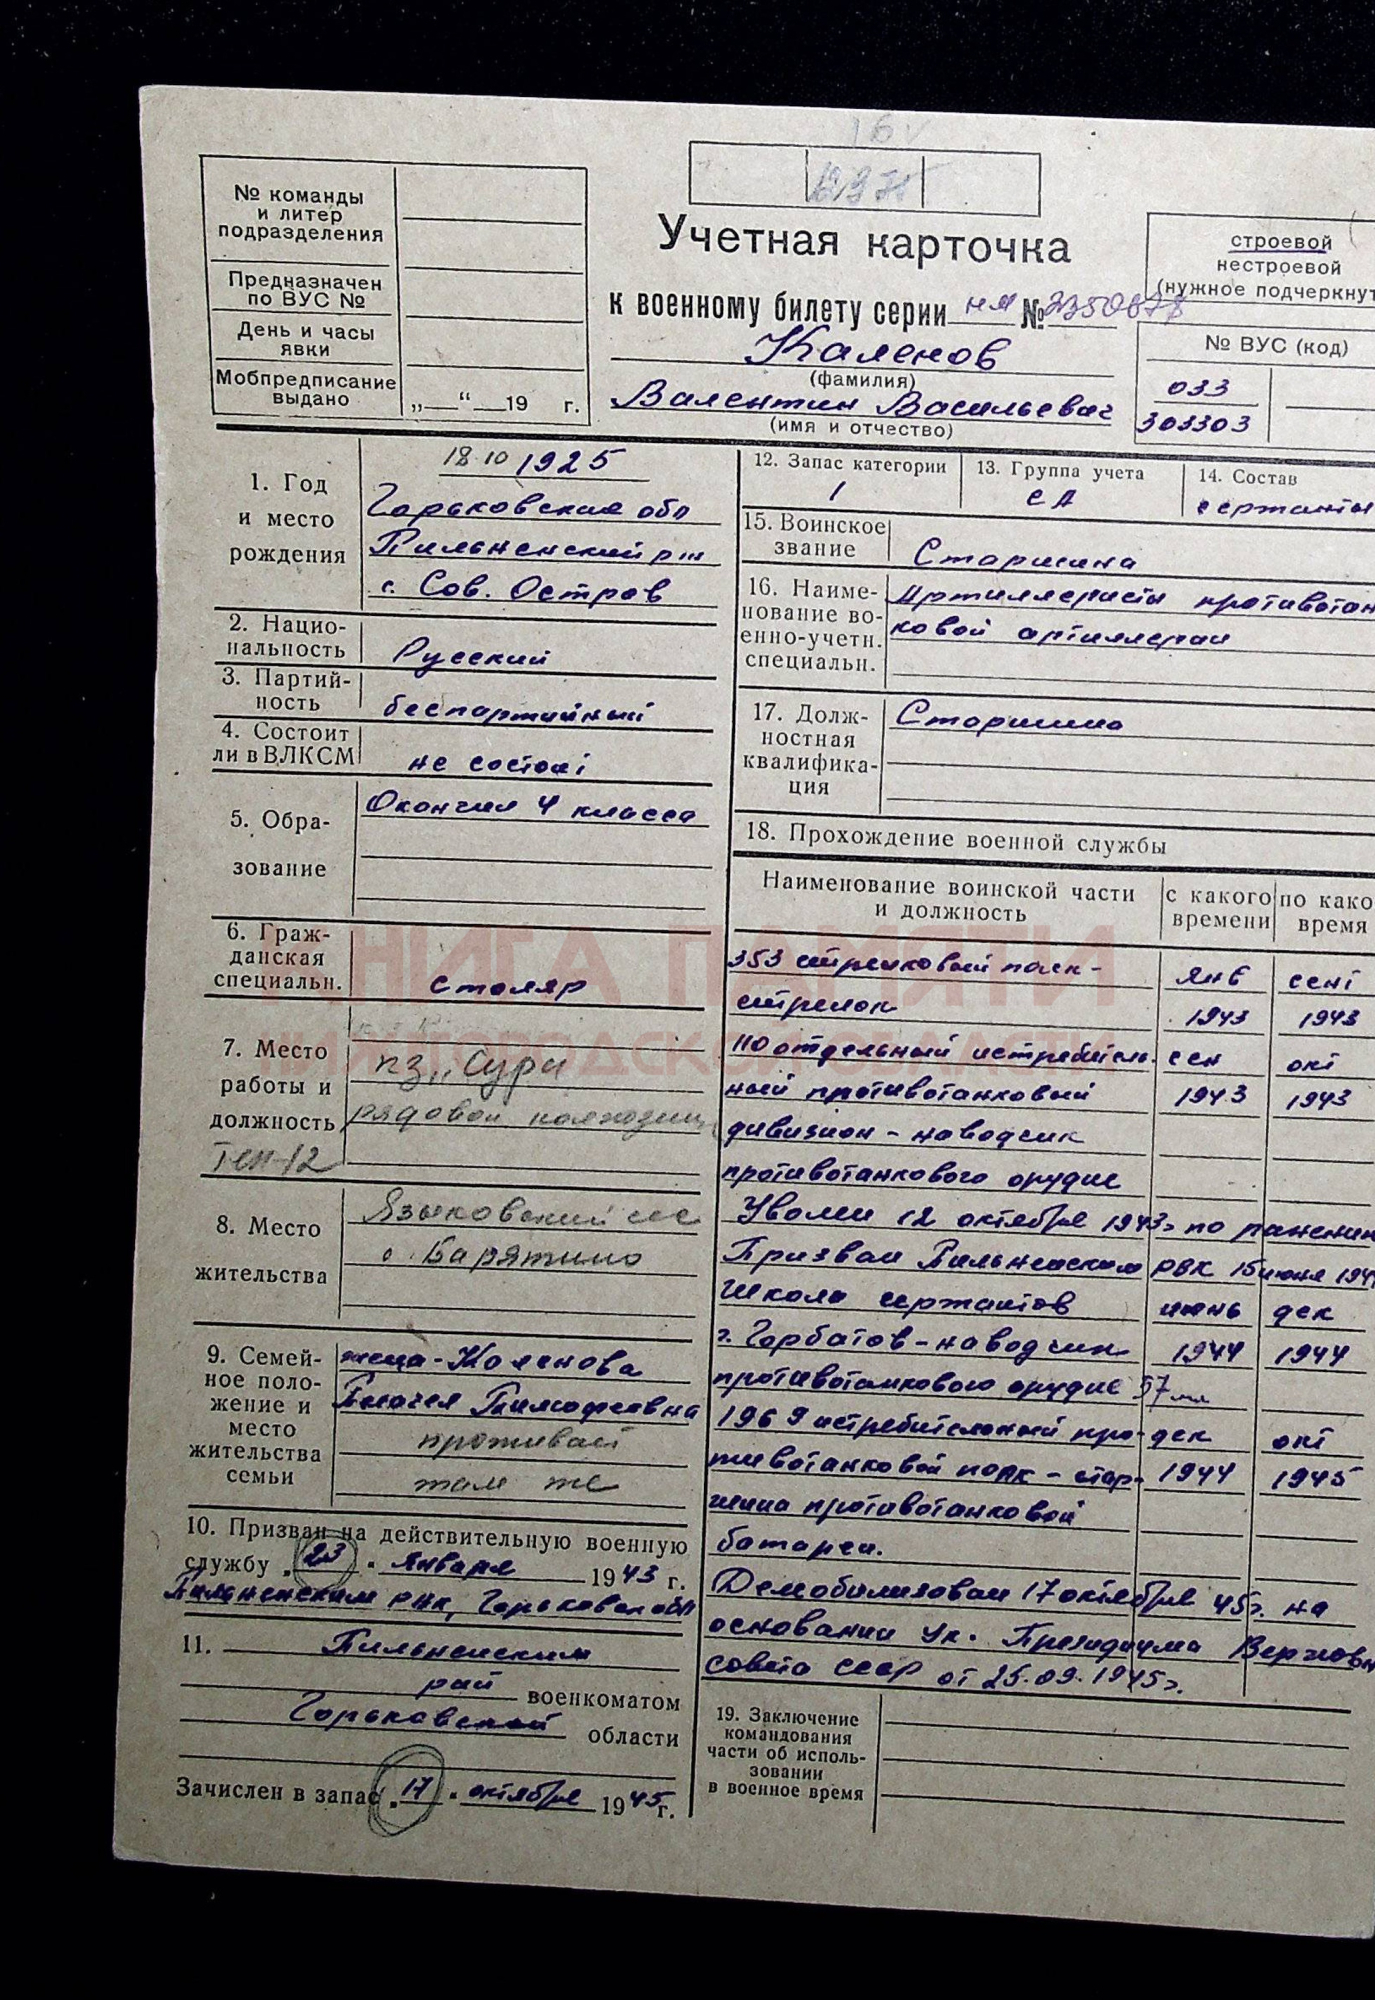 № команды
и литер
подразделения
Предназначен
по ВУС №
День и часы
явки
Мобпредписание
выдано
„ “ 19 г.
Учетная карточка
к военному билету серии НЯ №
Каленов
(фамилия)
Валентин Васильевич
(имя и отчество)
строевой
нестроевой
(нужное подчеркнут
№ ВУС (код)
033
303303
1. Год
и место
рождения
18.10 1925
Горьковская обл
Пильненский р-н
с. Сов. Остров
2. Нацио-
нальность
Русский
3. Партий-
ность
беспартийный
4. Состоит
ли в ВЛКСМ
не состоит
5. Обра-
зование
Окончил 4 класса
6. Граж-
данская
специальн.
столяр
7. Место
работы и
должность
пз „Сура
рядовой колхозник
8. Место
жительства
Языковский с/с
с. Барятино
9. Семей-
ное поло-
жение и
место
жительства
семьи
жена - Каленова
Тимофеевна
проживает
там же
10. Призван на действительную военную
службу „23“ января 1943 г.
Пильненским рвк, Горьковской обл
11. Пильненским
рай военкоматом
Горьковской области
Зачислен в запас „17“ октября 1945 г.
12. Запас категории
1
13. Группа учета
СА
14. Состав
сержанты
15. Воинское
звание
Старшина
16. Наиме-
нование во-
енно-учетн.
специальн.
Артиллеристы противотан
ковой артиллерии
17. Долж-
ностная
квалифика-
ция
Старшина
18. Прохождение военной службы
Наименование воинской части
и должность
с какого
времени
по како
время
353 стрелковый полк - янв сент
стрелок 1943 1943
110 отдельный истребитель- сен окт
ный противотанковый 1943 1943
дивизион - наводчик
противотанкового орудия
Уволен 12 октября 1943г. по ранению
Призван Пильненским РВК 15 июня 194
Школа сержантов июнь дек
г. Горбатов - наводчик 1944 1944
противотанкового орудия 57 мм
1969 истребительный про- дек окт
тивотанковой полк - стар- 1944 1945
шина противотанковой
батареи.
Демобилизован 17 октября 45г. на
основании Ук. Президиума Верховн
совета СССР от 25.09.1945г.
19. Заключение
командования
части об исполь-
зовании
в военное время
КНИГА ПАМЯТИ
НИЖЕГОРОДСКОЙ ОБЛАСТИ